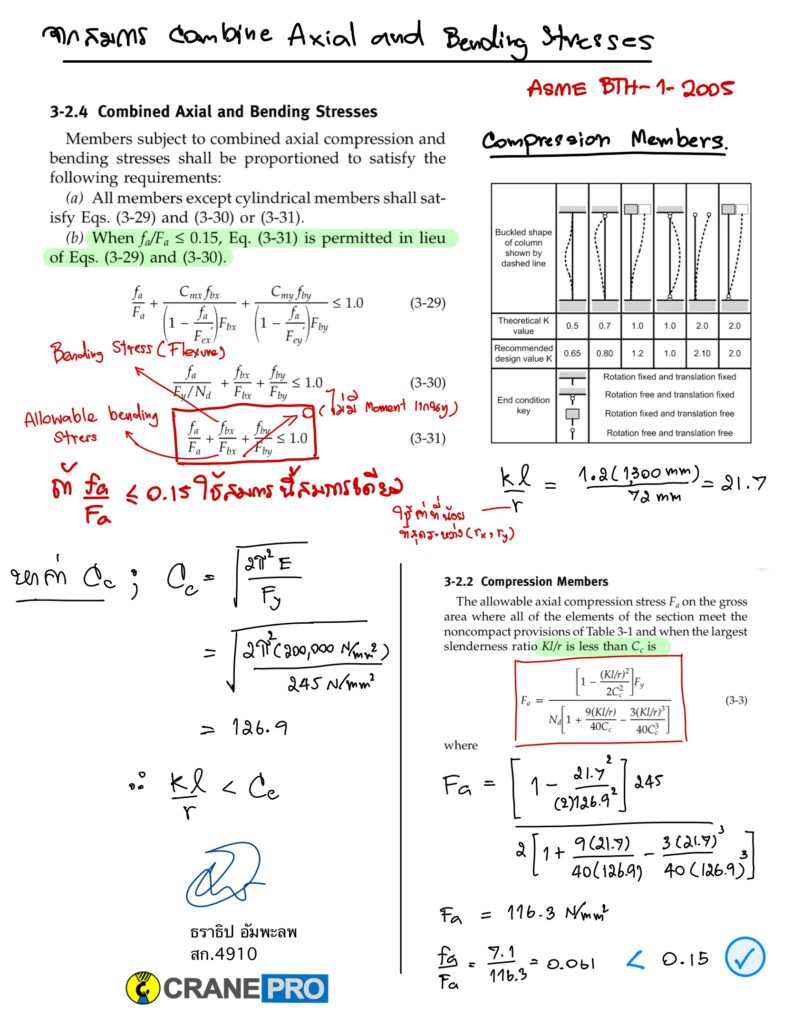 จากสมการ Combine Axial and Bending Stresses
ASME BTH-1-2005
3-2.4 Combined Axial and Bending Stresses
Members subject to combined axial compression and
bending stresses shall be proportioned to satisfy the
following requirements:
(a) All members except cylindrical members shall sat-
isfy Eqs. (3-29) and (3-30) or (3-31).
(b) When fa/Fa ≤ 0.15, Eq. (3-31) is permitted in lieu
of Eqs. (3-29) and (3-30).
fa/Fa + Cmx fbx/(1 − fa/Fex′)Fbx + Cmy fby/(1 − fa/Fey′)Fby ≤ 1.0 (3-29)
Bending Stress (Flexure)
fa/(Fy/Nd) + fbx/Fbx + fby/Fby ≤ 1.0 (3-30)
0 (ไม่มี Moment แกน y)
Allowable bending
Stress
fa/Fa + fbx/Fbx + fby/Fby ≤ 1.0 (3-31)
ถ้า fa/Fa ≤ 0.15 ใช้สมการนี้สมการเดียว
Compression Members.
Buckled shape
of column
shown by
dashed line
Theoretical K
value
0.5 0.7 1.0 1.0 2.0 2.0
Recommended
design value K
0.65 0.80 1.2 1.0 2.10 2.0
End condition
key
Rotation fixed and translation fixed
Rotation free and translation fixed
Rotation fixed and translation free
Rotation free and translation free
kl/r = 1.2(1,300 mm)/72 mm = 21.7
ใช้ค่าที่น้อย
ที่สุดระหว่าง (rx, ry)
หาค่า Cc ; Cc = √(2π² E/Fy)
= √(2π²(200,000 N/mm²)/245 N/mm²)
= 126.9
∴ kl/r < Cc
3-2.2 Compression Members
The allowable axial compression stress Fa on the gross
area where all of the elements of the section meet the
noncompact provisions of Table 3-1 and when the largest
slenderness ratio Kl/r is less than Cc is
Fa = [1 − (Kl/r)²/2Cc²]Fy / Nd[1 + 9(Kl/r)/40Cc − 3(Kl/r)³/40Cc³] (3-3)
where
Fa = [1 − 21.7²/(2)126.9²] 245 / 2[1 + 9(21.7)/40(126.9) − 3(21.7)³/40(126.9)³]
Fa = 116.3 N/mm²
fa/Fa = 7.1/116.3 = 0.061 < 0.15
ธราธิป อัมพะลพ
สก.4910
CRANE PRO